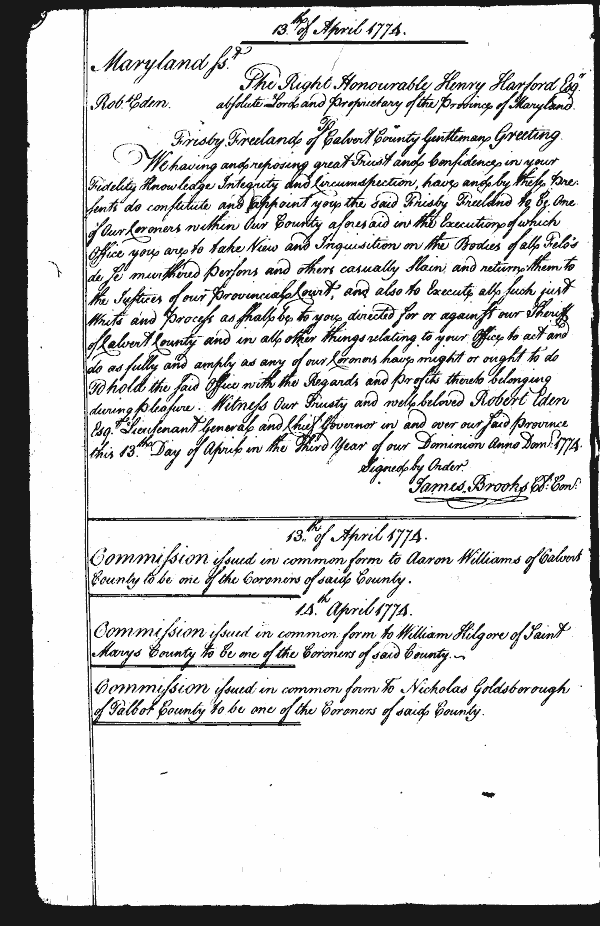 13.th of April 1774.
Maryland ss.t
The Right Honourable Henry Harford Esqr
Rob.t Eden. absolute Lord and Proprietary of the Province of Maryland
To
Frisby Freeland of Calvert County Gentleman Greeting
We having and reposing great Trust and Confidence in your
Fidelity Knowledge Integrity and Circumspection, have and by these Pre-
sents do constitute and appoint you the said Frisby Freeland to be One
of Our Coroners within Our County aforesaid in the Execution of which
Office you are to take View and Inquisition on the Bodies of all Felo's
de Se murthered Persons and others casually Slain, and return them to
the Justices of our Provincial Court, and also to Execute all such just
Writs and Process as shall be to you directed for or against our Sheriff
of Calvert County and in all other things relating to your Office to act and
do as fully and amply as any of our Coroners have might or ought to do
To hold the said Office with the Regards and Profits thereto belonging
during pleasure. Witness Our Trusty and well beloved Robert Eden
Esq.r Lieutenant General and Chief Governor in and over our said Province
this 13.th Day of April in the Third Year of our Dominion Anno Dom.i 1774.
Signed by Order
James Brooks Cl. Con.
13.th of April 1774.
Commission issued in common form to Aaron Williams of Calvert
County to be one of the Coroners of said County.
14.th April 1774.
Commission issued in common form to William Kilgore of Saint
Marys County to be one of the Coroners of said County.
Commission issued in common form to Nicholas Goldsborough
of Talbot County to be one of the Coroners of said County.